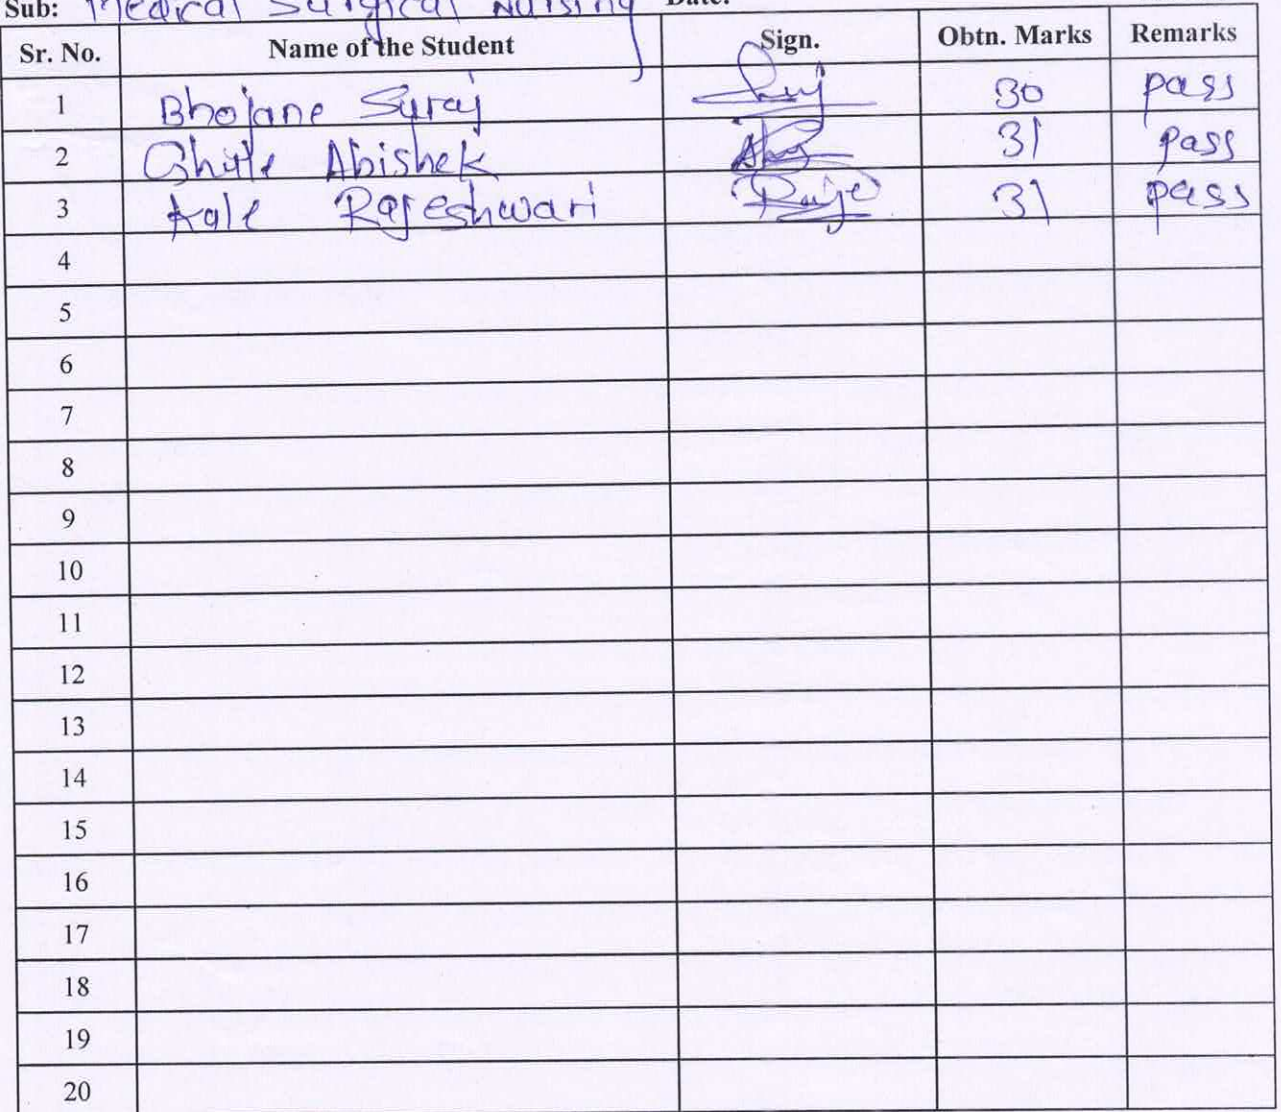 Sub: Medical Surgical Nursing Date:
Sr. No. Name of the Student Sign. Obtn. Marks Remarks
1 Bhojane Suraj 30 pass
2 Abishek 31 pass
3 Kale Rajeshwari 31 pass
4
5
6
7
8
9
10
11
12
13
14
15
16
17
18
19
20